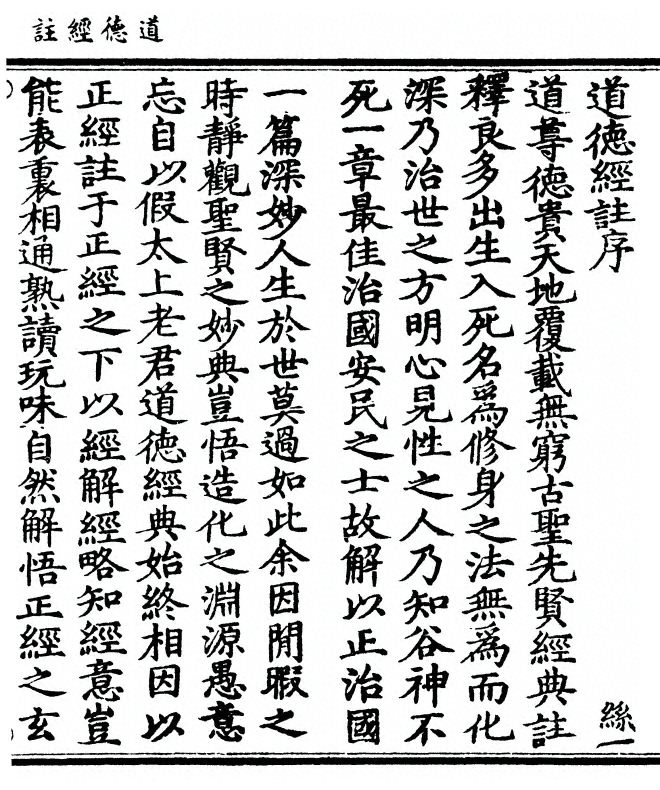 道德經註
道德經註序 絲一
道尊德貴天地覆載無窮古聖先賢經典註
釋良多出生入死名爲修身之法無爲而化
深乃治世之方明心見性之人乃知谷神不
死一章最佳治國安民之士故解以正治國
一篇深妙人生於世莫過如此余因閒暇之
時靜觀聖賢之妙典豈悟造化之淵源愚意
忘自以假太上老君道德經典始終相因以
正經註于正經之下以經解經略知經意豈
能表裏相通熟讀玩味自然解悟正經之玄